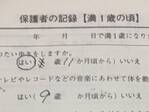 保護者の記録【満1歳の頃】
日で満1歳になり
はい( 歳11か月頃から)いいえ
テレビやレコードなどの音楽にあわせて体を動
はい(9歳 か月頃から)いいえ